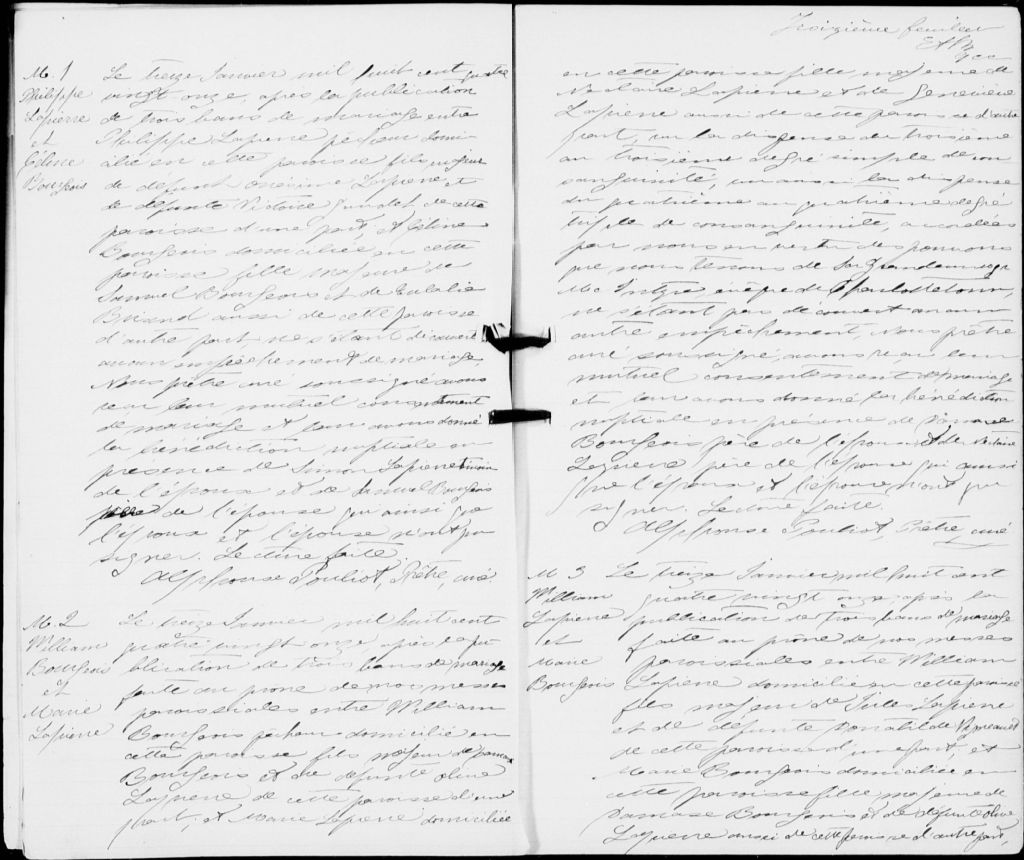 M. 1
Philippe
Lapierre
et
Céline
Bourgeois
Le treize Janvier mil huit cent quatre
vingt onze, après la publication
de trois bans de mariage entre
Philippe Lapierre pêcheur domi-
cilié en cette paroisse fils majeur
de défunt Onésime Lapierre et
de défunte Victoire de cette
paroisse d'une part, et Céline
Bourgeois domiciliée en cette
paroisse fille majeure de
Samuel Bourgeois et de Eulalie
Briand aussi de cette paroisse
d'autre part, ne s'étant découvert
aucun empêchement de mariage,
Nous prêtre curé soussigné avons
reçu leur mutuel consentement
de mariage et leur avons donné
la bénédiction nuptiale en
présence de Simon Lapierre témoin
de l'époux et de Samuel Bourgeois
père de l'épouse qui ainsi que
l'époux et l'épouse n'ont pu
signer. Lecture faite.
Alphonse Pouliot, Prêtre, curé
M. 2
William
Bourgeois
et
Marie
Lapierre
Le treize Janvier mil huit cent
quatre vingt onze après la pu
blication de trois bans de mariage
faite au prône de nos messes
paroissiales entre William
Bourgeois pêcheur domicilié en
cette paroisse fils majeur de Damase
Bourgeois et de défunte Olive
Lapierre de cette paroisse d'une
part, et Marie Lapierre domiciliée
Troisième feuillet
en cette paroisse fille majeure de
Nectaire Lapierre et de Geneviève
Lapierre aussi de cette paroisse d'autre
part, vu la dispense du troisième
au troisième degré simple de con
sanguinité, vu aussi la dispense
du quatrième au quatrième degré
triple de consanguinité, accordées
par nous en vertu des pouvoirs
que nous tenons de Sa Grandeur Mgr
Mc Intyre, évêque de Charlottetown,
ne s'étant pas découvert aucun
autre empêchement, Nous prêtre
curé soussigné, avons reçu leur
mutuel consentement de mariage
et leur avons donné la bénédiction
nuptiale en présence de Damase
Bourgeois père de l'époux et de Nectaire
Lapierre père de l'épouse qui ainsi
que l'époux et l'épouse n'ont pu
signer. Lecture faite.
Alphonse Pouliot, Prêtre, curé
M 3
William
Lapierre
et
Marie
Bourgeois
Le treize Janvier mil huit cent
quatre vingt onze après la
publication de trois bans de mariage
faite au prône de nos messes
paroissiales entre William
Lapierre domicilié en cette paroisse
fils majeur de Jules Lapierre
et de défunte Donatilde Vigneault
de cette paroisse d'une part, et
Marie Bourgeois domiciliée en
cette paroisse fille majeure de
Damase Bourgeois et de défunte Olive
Lapierre aussi de cette paroisse d'autre part,